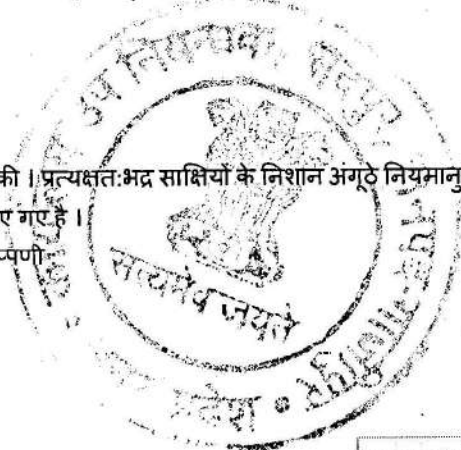 की । प्रत्यक्षत:भद्र साक्षियों के निशान अंगूठे नियमानु
ए गए है ।
प्पणी
उप निबन्धक
सत्यमेव जयते
प्रदेश